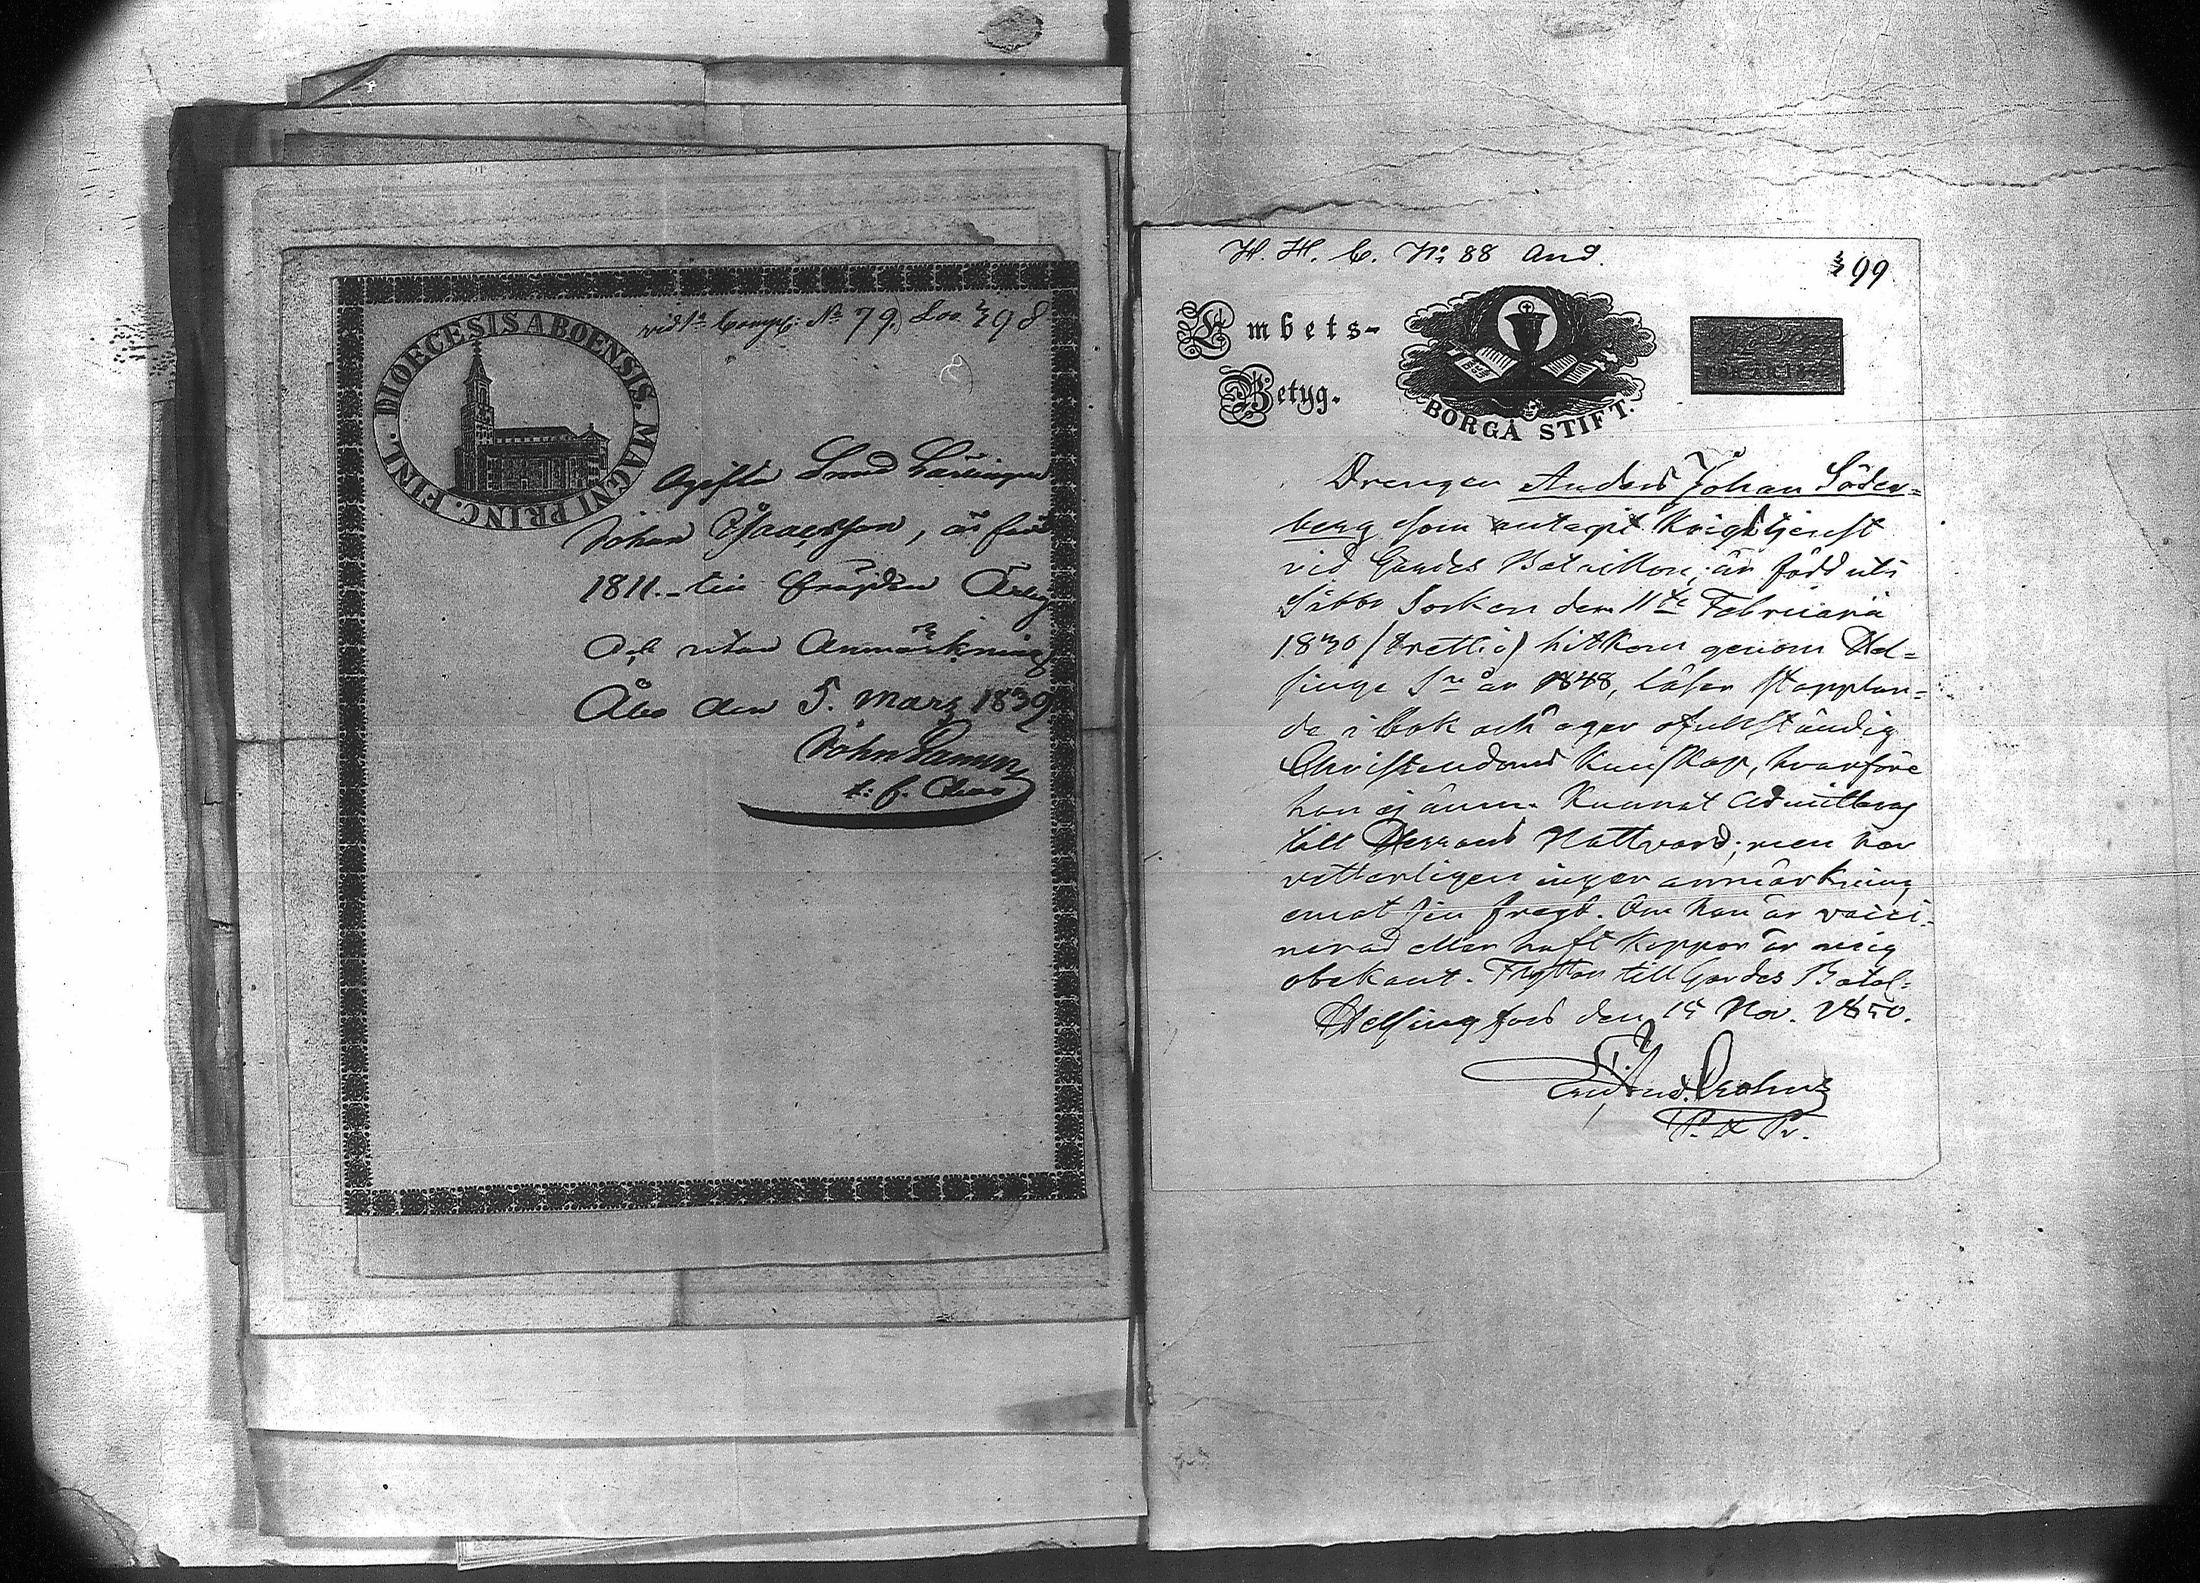 vid 1a Comp: No 79. 398
DIOECESIS ABOENSIS. MAGNI PRINC. FINL.
Smed Lärlingen
Johan Isaacsson, är född
1811. till frägden Ärlig
och utan Anmärkning
Åbo den 5. Mars 1839
H. H. C. No 88 And.
399
Embets-
Betyg.
BORGÅ STIFT.
Drengen Anders Johan Söder=
berg som antagit Krigstjenst
vid Gardes Bataillon, är född uti
Sibbo Socken den 11te Februarii
1830 (trettio) hitkom genom Hel=
singe Sn år 1848, läser stapplan=
de i bok och eger ofullständig
Christendoms Kunskap, hvarföre
han ej ännu Kunnat admitteras
till Herrans Nattvard; men har
vetterligen ingen anmärkning
emot sin fregd. Om han är vacci=
nerad eller haft Koppor är mig
obekant. Flyttar till Gardes Batal=
Helsingfors den 15 Nov. 1850.